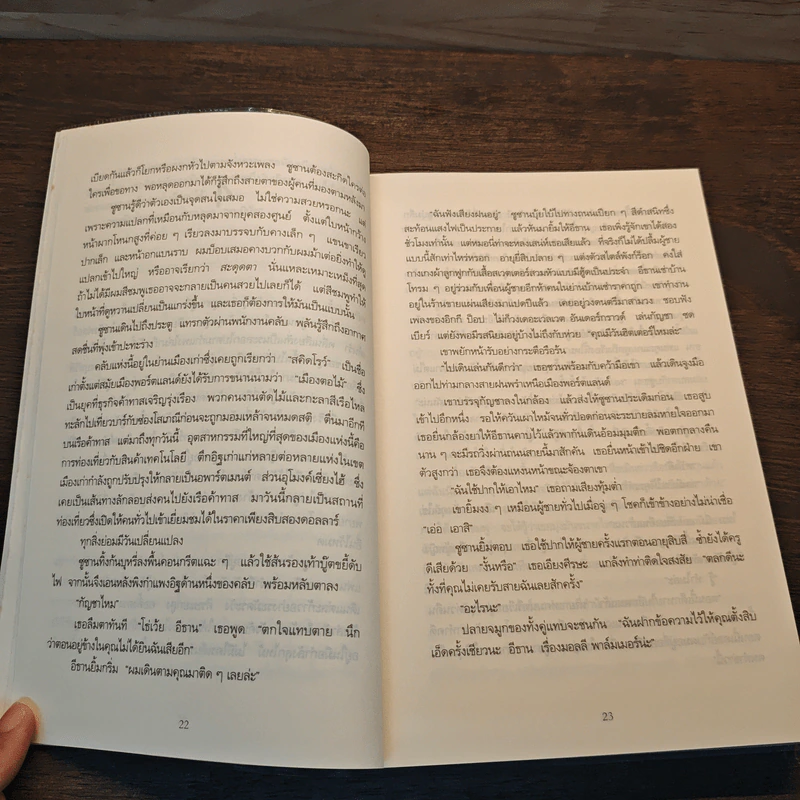 เบียดกันแล้วก็โยกหรือผงกหัวไปตามจังหวะเพลง ซูซานต้องสะกิดใครต่อ
ใครเพื่อขอทาง พอหลุดออกมาได้ก็รู้สึกถึงสายตาของผู้คนที่มองตามหลังมา
ซูซานรู้ดีว่าตัวเองเป็นจุดสนใจเสมอ ไม่ใช่ความสวยหรอกนะ แต่
เพราะความแปลกที่เหมือนกับหลุดมาจากยุคสองศูนย์ ตั้งแต่ใบหน้ากว้าง
หน้าผากโหนกสูงที่ค่อย ๆ เรียวลงมาบรรจบกับคางเล็ก ๆ แขนขาเรียว
ปากเล็ก และหน้าอกแบนราบ ผมบ็อบเสมอคางบวกกับผมม้าเต่อยิ่งทำให้ดู
แปลกเข้าไปใหญ่ หรืออาจเรียกว่า สะดุดตา นั่นแหละเหมาะเหม็งที่สุด
ถ้าไม่ได้มีผมสีชมพูเธออาจจะกลายเป็นคนสวยไปเลยก็ได้ แต่สีชมพูทำให้
ใบหน้าที่ดูหวานเปลี่ยนเป็นแกร่งขึ้น และเธอก็ต้องการให้มันเป็นแบบนั้น
ซูซานเดินไปถึงประตู แทรกตัวผ่านพนักงานคลับ พลันรู้สึกถึงอากาศ
สดชื่นที่พุ่งเข้าปะทะร่าง
คลับแห่งนี้อยู่ในย่านเมืองเก่าซึ่งเคยถูกเรียกว่า “สคิดโรว์” เป็นชื่อ
เก่าตั้งแต่สมัยเมืองพอร์ตแลนด์ยังได้รับการขนานนามว่า “เมืองตอไม้” ซึ่ง
เป็นยุคที่ธุรกิจค้าทาสเจริญรุ่งเรือง พวกคนงานตัดไม้และกะลาสีเรือไหล
ทะลักไปเที่ยวบาร์กับซ่องโสเภณีก่อนจะถูกมอมเหล้าจนหมดสติ ตื่นมาอีกที
บนเรือค้าทาส แต่มาถึงทุกวันนี้ อุตสาหกรรมที่ใหญ่ที่สุดของเมืองแห่งนี้คือ
การท่องเที่ยวกับสินค้าเทคโนโลยี ตึกอิฐเก่าแก่หลายต่อหลายแห่งในเขต
เมืองเก่ากำลังถูกปรับปรุงให้กลายเป็นอพาร์ตเมนต์ ส่วนอุโมงค์เซี่ยงไฮ้ ซึ่ง
เคยเป็นเส้นทางลักลอบส่งคนไปยังเรือค้าทาส มาวันนี้กลายเป็นสถานที่
ท่องเที่ยวซึ่งเปิดให้คนทั่วไปเข้าเยี่ยมชมได้ในราคาเพียงสิบสองดอลลาร์
ทุกสิ่งย่อมมีวันเปลี่ยนแปลง
ซูซานทิ้งก้นบุหรี่ลงพื้นคอนกรีตแฉะ ๆ แล้วใช้ส้นรองเท้าบู๊ตขยี้ดับ
ไฟ จากนั้นจึงเอนหลังพิงกำแพงอิฐด้านหนึ่งของคลับ พร้อมหลับตาลง
“กัญชาไหม”
เธอลืมตาทันที “โธ่เว้ย อีธาน” เธอพูด “ตกใจแทบตาย นึก
ว่าตอนอยู่ข้างในคุณไม่ได้ยินฉันเสียอีก”
อีธานยิ้มกริ่ม “ผมเดินตามคุณมาติด ๆ เลยล่ะ”
22
“ฉันฟังเสียงฝนอยู่” ซูซานบุ้ยใบ้ไปทางถนนเปียก ๆ สีดำสนิทซึ่ง
สะท้อนแสงไฟเป็นประกาย แล้วหันมายิ้มให้อีธาน เธอเพิ่งรู้จักเขาได้สอง
ชั่วโมงเท่านั้น แต่หมอนี่ท่าจะหลงเสน่ห์เธอเสียแล้ว ที่จริงก็ไม่ได้ปลื้มผู้ชาย
แบบนี้สักเท่าไหร่หรอก อายุยี่สิบปลาย ๆ แต่งตัวสไตล์พังก์ร็อก คงใส่
กางเกงผ้าลูกฟูกกับเสื้อสเวตเตอร์สวมหัวแบบมีฮู้ดเป็นประจำ อีธานเช่าบ้าน
โทรม ๆ อยู่ร่วมกับเพื่อนผู้ชายอีกห้าคนในย่านบ้านเช่าราคาถูก เขาทำงาน
อยู่ในร้านขายแผ่นเสียงมาแปดปีแล้ว เคยอยู่วงดนตรีมาสามวง ชอบฟัง
เพลงของอิกกี ป็อป ไม่ก็วงเดอะเวลเวต อันเดอร์กราวด์ เล่นกัญชา ซด
เบียร์ แต่ยังพอมีรสนิยมอยู่บ้างไม่ถึงกับห่วย “คุณมีวันฮิตเตอร์ไหมล่ะ”
เขาพยักหน้ารับอย่างกระตือรือร้น
“ไปเดินเล่นกันดีกว่า” เธอชวนพร้อมกับคว้ามือเขา แล้วเดินจูงมือ
ออกไปท่ามกลางสายฝนพรำเหนือเมืองพอร์ตแลนด์
เขาบรรจุกัญชาลงในกล้อง แล้วส่งให้ซูซานประเดิมก่อน เธอสูบ
เข้าไปอึกหนึ่ง รอให้ควันเผาไหม้จนทั่วปอดก่อนจะระบายลมหายใจออกมา
เธอยื่นกล้องยาให้อีธานคาบไว้แล้วพากันเดินอ้อมมุมตึก พอตกกลางคืน
นาน ๆ จะมีรถวิ่งผ่านถนนสายนี้มาสักคัน เธอยืนหน้าเข้าไปชิดอีกฝ่าย เขา
ตัวสูงกว่า เธอจึงต้องแหงนหน้าขณะจ้องตาเขา
“ฉันใช้ปากให้เอาไหม” เธอถามเสียงทุ้มต่ำ
เขายิ้มงง ๆ เหมือนผู้ชายทั่วไปเมื่อจู่ ๆ โชคก็เข้าข้างอย่างไม่น่าเชื่อ
“เอ่อ เอาสิ”
ซูซานยิ้มตอบ เธอใช้ปากให้ผู้ชายครั้งแรกตอนอายุสิบสี่ ซ้ำยังได้ครู
ดีเสียด้วย “งั้นหรือ” เธอเอียงศีรษะ แกล้งทำท่าคิดใจสงสัย “ตลกดีนะ
ทั้งที่คุณไม่เคยรับสายฉันเลยสักครั้ง”
“อะไรนะ”
ปลายจมูกของทั้งคู่แทบจะชนกัน “ฉันฝากข้อความไว้ให้คุณตั้งสิบ
เอ็ดครั้งเชียวนะ อีธาน เรื่องมอลลี พาล์มเมอร์น่ะ”
23